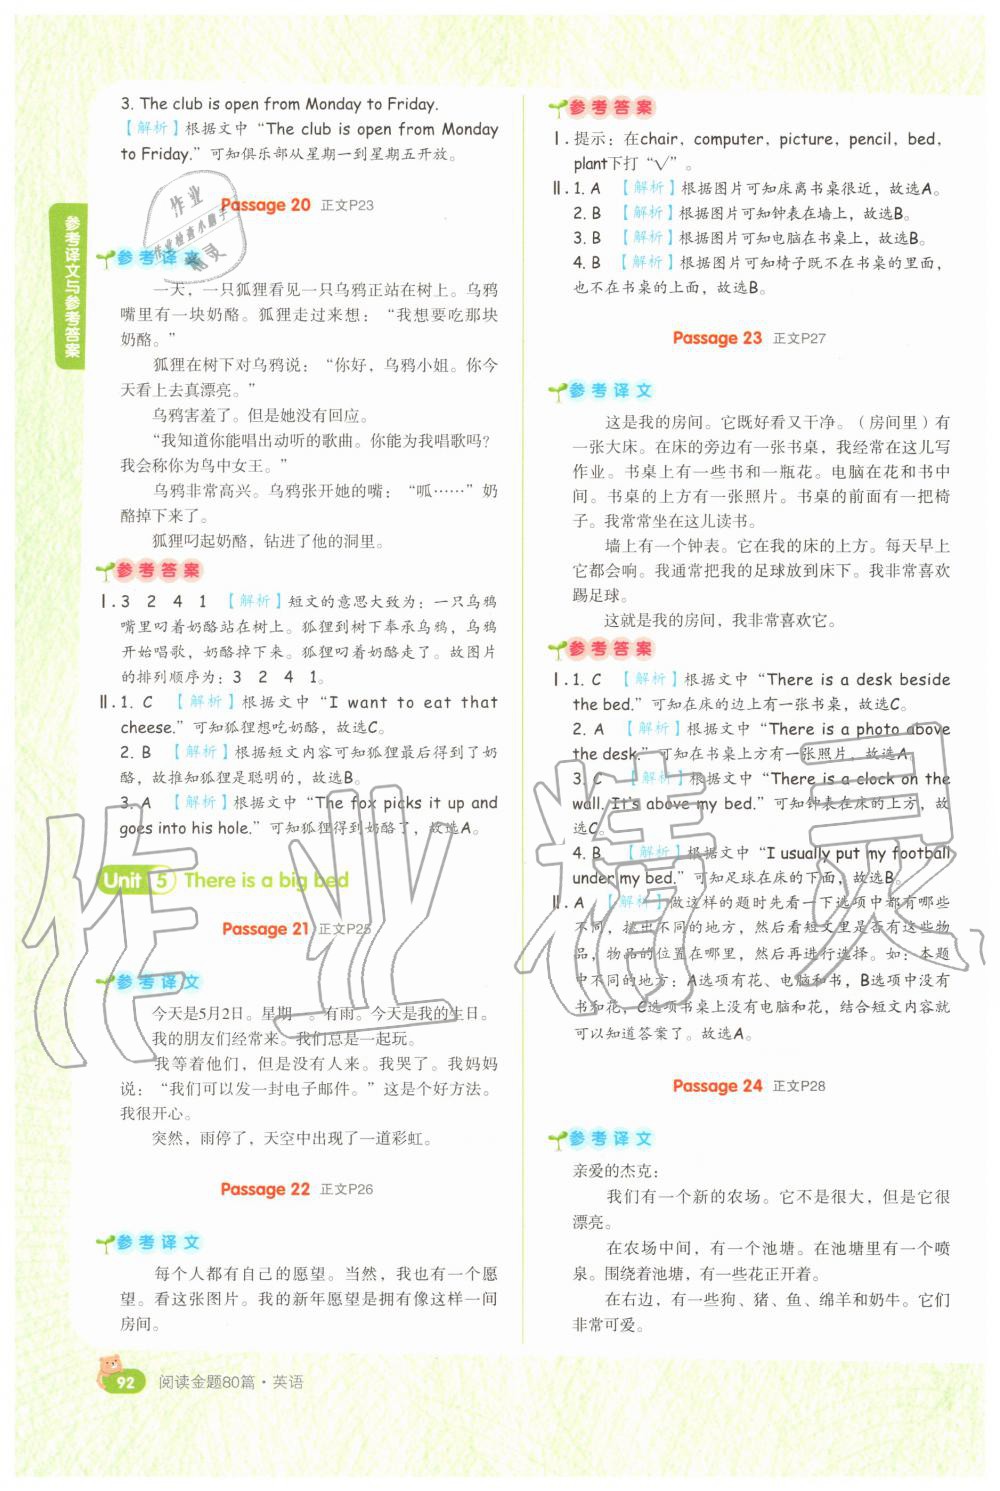 3. The club is open from Monday to Friday.
【解析】根据文中“The club is open from Monday
to Friday.”可知俱乐部从星期一到星期五开放。
Passage 20 正文P23
参考译文
一天，一只狐狸看见一只乌鸦正站在树上。乌鸦
嘴里有一块奶酪。狐狸走过来想：“我想要吃那块
奶酪。”
狐狸在树下对乌鸦说：“你好，乌鸦小姐。你今
天看上去真漂亮。”
乌鸦害羞了。但是她没有回应。
“我知道你能唱出动听的歌曲。你能为我唱歌吗？
我会称你为鸟中女王。”
乌鸦非常高兴。乌鸦张开她的嘴：“呱……”奶
酪掉下来了。
狐狸叼起奶酪，钻进了他的洞里。
参考答案
Ⅰ. 3 2 4 1 【解析】短文的意思大致为：一只乌鸦
嘴里叼着奶酪站在树上。狐狸到树下奉承乌鸦，乌鸦
开始唱歌，奶酪掉下来。狐狸叼着奶酪走了。故图片
的排列顺序为：3 2 4 1。
Ⅱ. 1. C 【解析】根据文中“I want to eat that
cheese.”可知狐狸想吃奶酪，故选C。
2. B 【解析】根据短文内容可知狐狸最后得到了奶
酪，故推知狐狸是聪明的，故选B。
3. A 【解析】根据文中“The fox picks it up and
goes into his hole.”可知狐狸得到奶酪了，故选A。
Unit 5 There is a big bed
Passage 21 正文P25
参考译文
今天是5月2日。星期一。有雨。今天是我的生日。
我的朋友们经常来。我们总是一起玩。
我等着他们，但是没有人来。我哭了。我妈妈
说：“我们可以发一封电子邮件。”这是个好方法。
我很开心。
突然，雨停了，天空中出现了一道彩虹。
Passage 22 正文P26
参考译文
每个人都有自己的愿望。当然，我也有一个愿
望。看这张图片。我的新年愿望是拥有像这样一间
房间。
参考答案
Ⅰ. 提示：在chair，computer，picture，pencil，bed，
plant下打“√”。
Ⅱ. 1. A 【解析】根据图片可知床离书桌很近，故选A。
2. B 【解析】根据图片可知钟表在墙上，故选B。
3. B 【解析】根据图片可知电脑在书桌上，故选B。
4. B 【解析】根据图片可知椅子既不在书桌的里面，
也不在书桌的上面，故选B。
Passage 23 正文P27
参考译文
这是我的房间。它既好看又干净。（房间里）有
一张大床。在床的旁边有一张书桌，我经常在这儿写
作业。书桌上有一些书和一瓶花。电脑在花和书中
间。书桌的上方有一张照片。书桌的前面有一把椅
子。我常常坐在这儿读书。
墙上有一个钟表。它在我的床的上方。每天早上
它都会响。我通常把我的足球放到床下。我非常喜欢
踢足球。
这就是我的房间，我非常喜欢它。
参考答案
Ⅰ. 1. C 【解析】根据文中“There is a desk beside
the bed.”可知在床的边上有一张书桌，故选C。
2. A 【解析】根据文中“There is a photo above
the desk.”可知在书桌上方有一张照片，故选A。
3. C 【解析】根据文中“There is a clock on the
wall. It's above my bed.”可知钟表在床的上方，故
选C。
4. B 【解析】根据文中“I usually put my football
under my bed.”可知足球在床的下面，故选B。
Ⅱ. A 【解析】做这样的题时先看一下选项中都有哪些
不同，找出不同的地方，然后看短文里是否有这些物
品，物品的位置在哪里，然后再进行选择。如：本题
中不同的地方：A选项有花、电脑和书，B选项中没有
书和花，C选项书桌上没有电脑和花，结合短文内容就
可以知道答案了。故选A。
Passage 24 正文P28
参考译文
亲爱的杰克：
我们有一个新的农场。它不是很大，但是它很
漂亮。
在农场中间，有一个池塘。在池塘里有一个喷
泉。围绕着池塘，有一些花正开着。
在右边，有一些狗、猪、鱼、绵羊和奶牛。它们
非常可爱。
参考译文与参考答案
92 阅读金题80篇·英语
作业精灵
作业
作业检查小助手
精灵